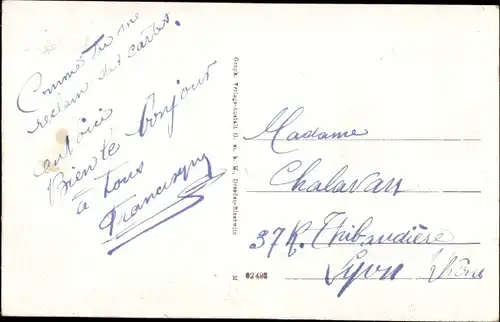 Comme tu me
reclam des cartes.
en voici
Biento Bonjour
à tous
Graph. Verlags-Anstalt G. m. b. H., Dresden-Blasewitz
M 02498
Madame
Chalavan
37 R. Thibaudière
Lyon Rhône